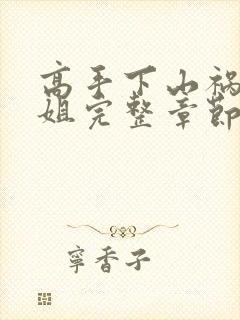 高手下山祸
姐完整章節
寧香子